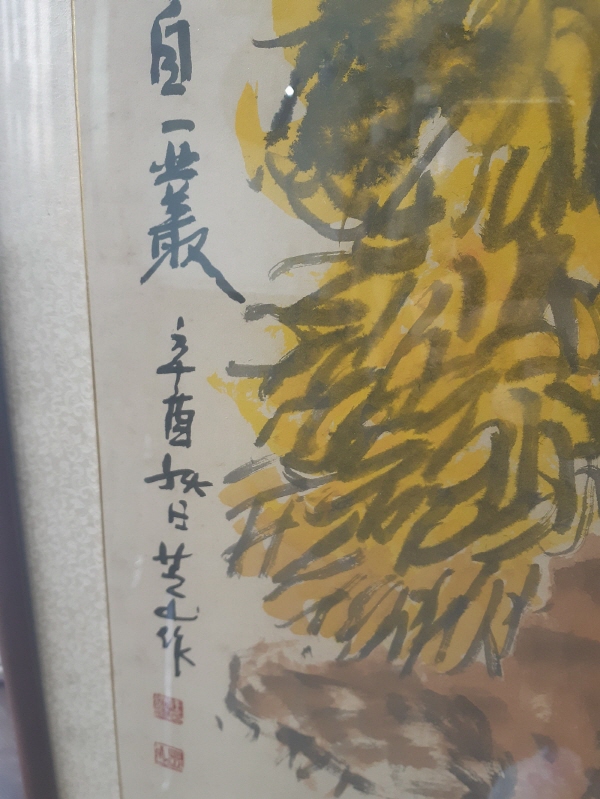 自一叢
辛酉秋日芝光作